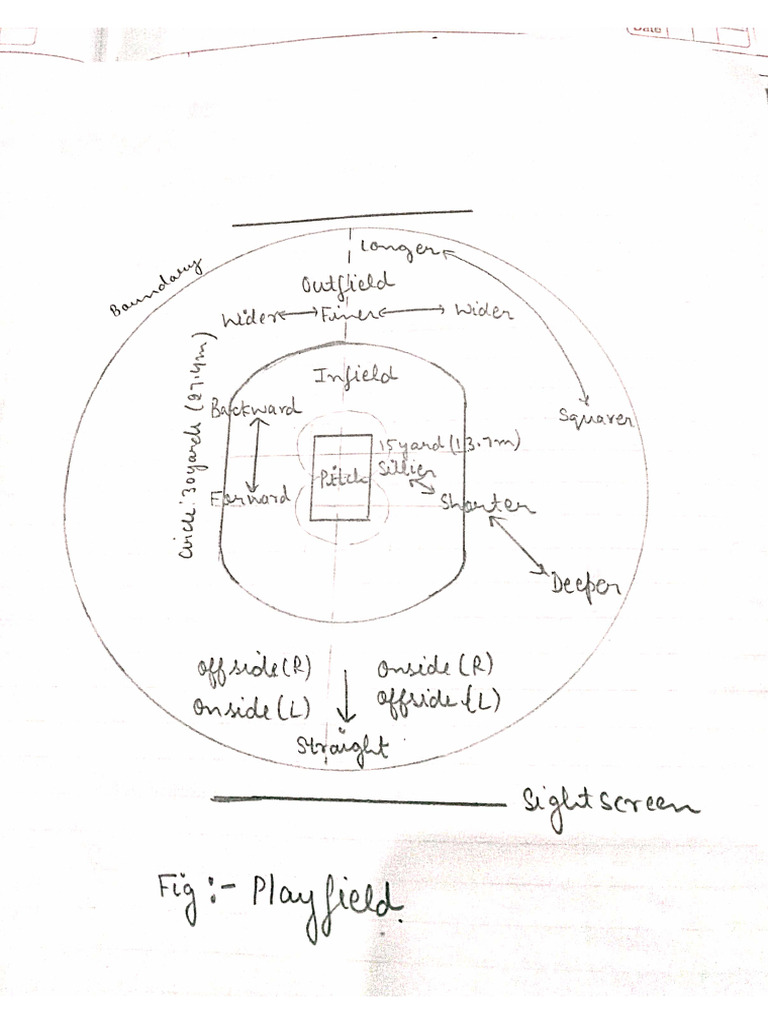 Date
Longer
Boundary
Outfield
Wider Finer Wider
Infield
Circle: 30 yards (27.4m)
Backward
Squarer
15 yard (13.7m)
Pitch Sillier
Forward Shorter
Deeper
Offside (R) Onside (R)
Onside (L) Offside (L)
Straight
Sight Screen
Fig :- Playfield.